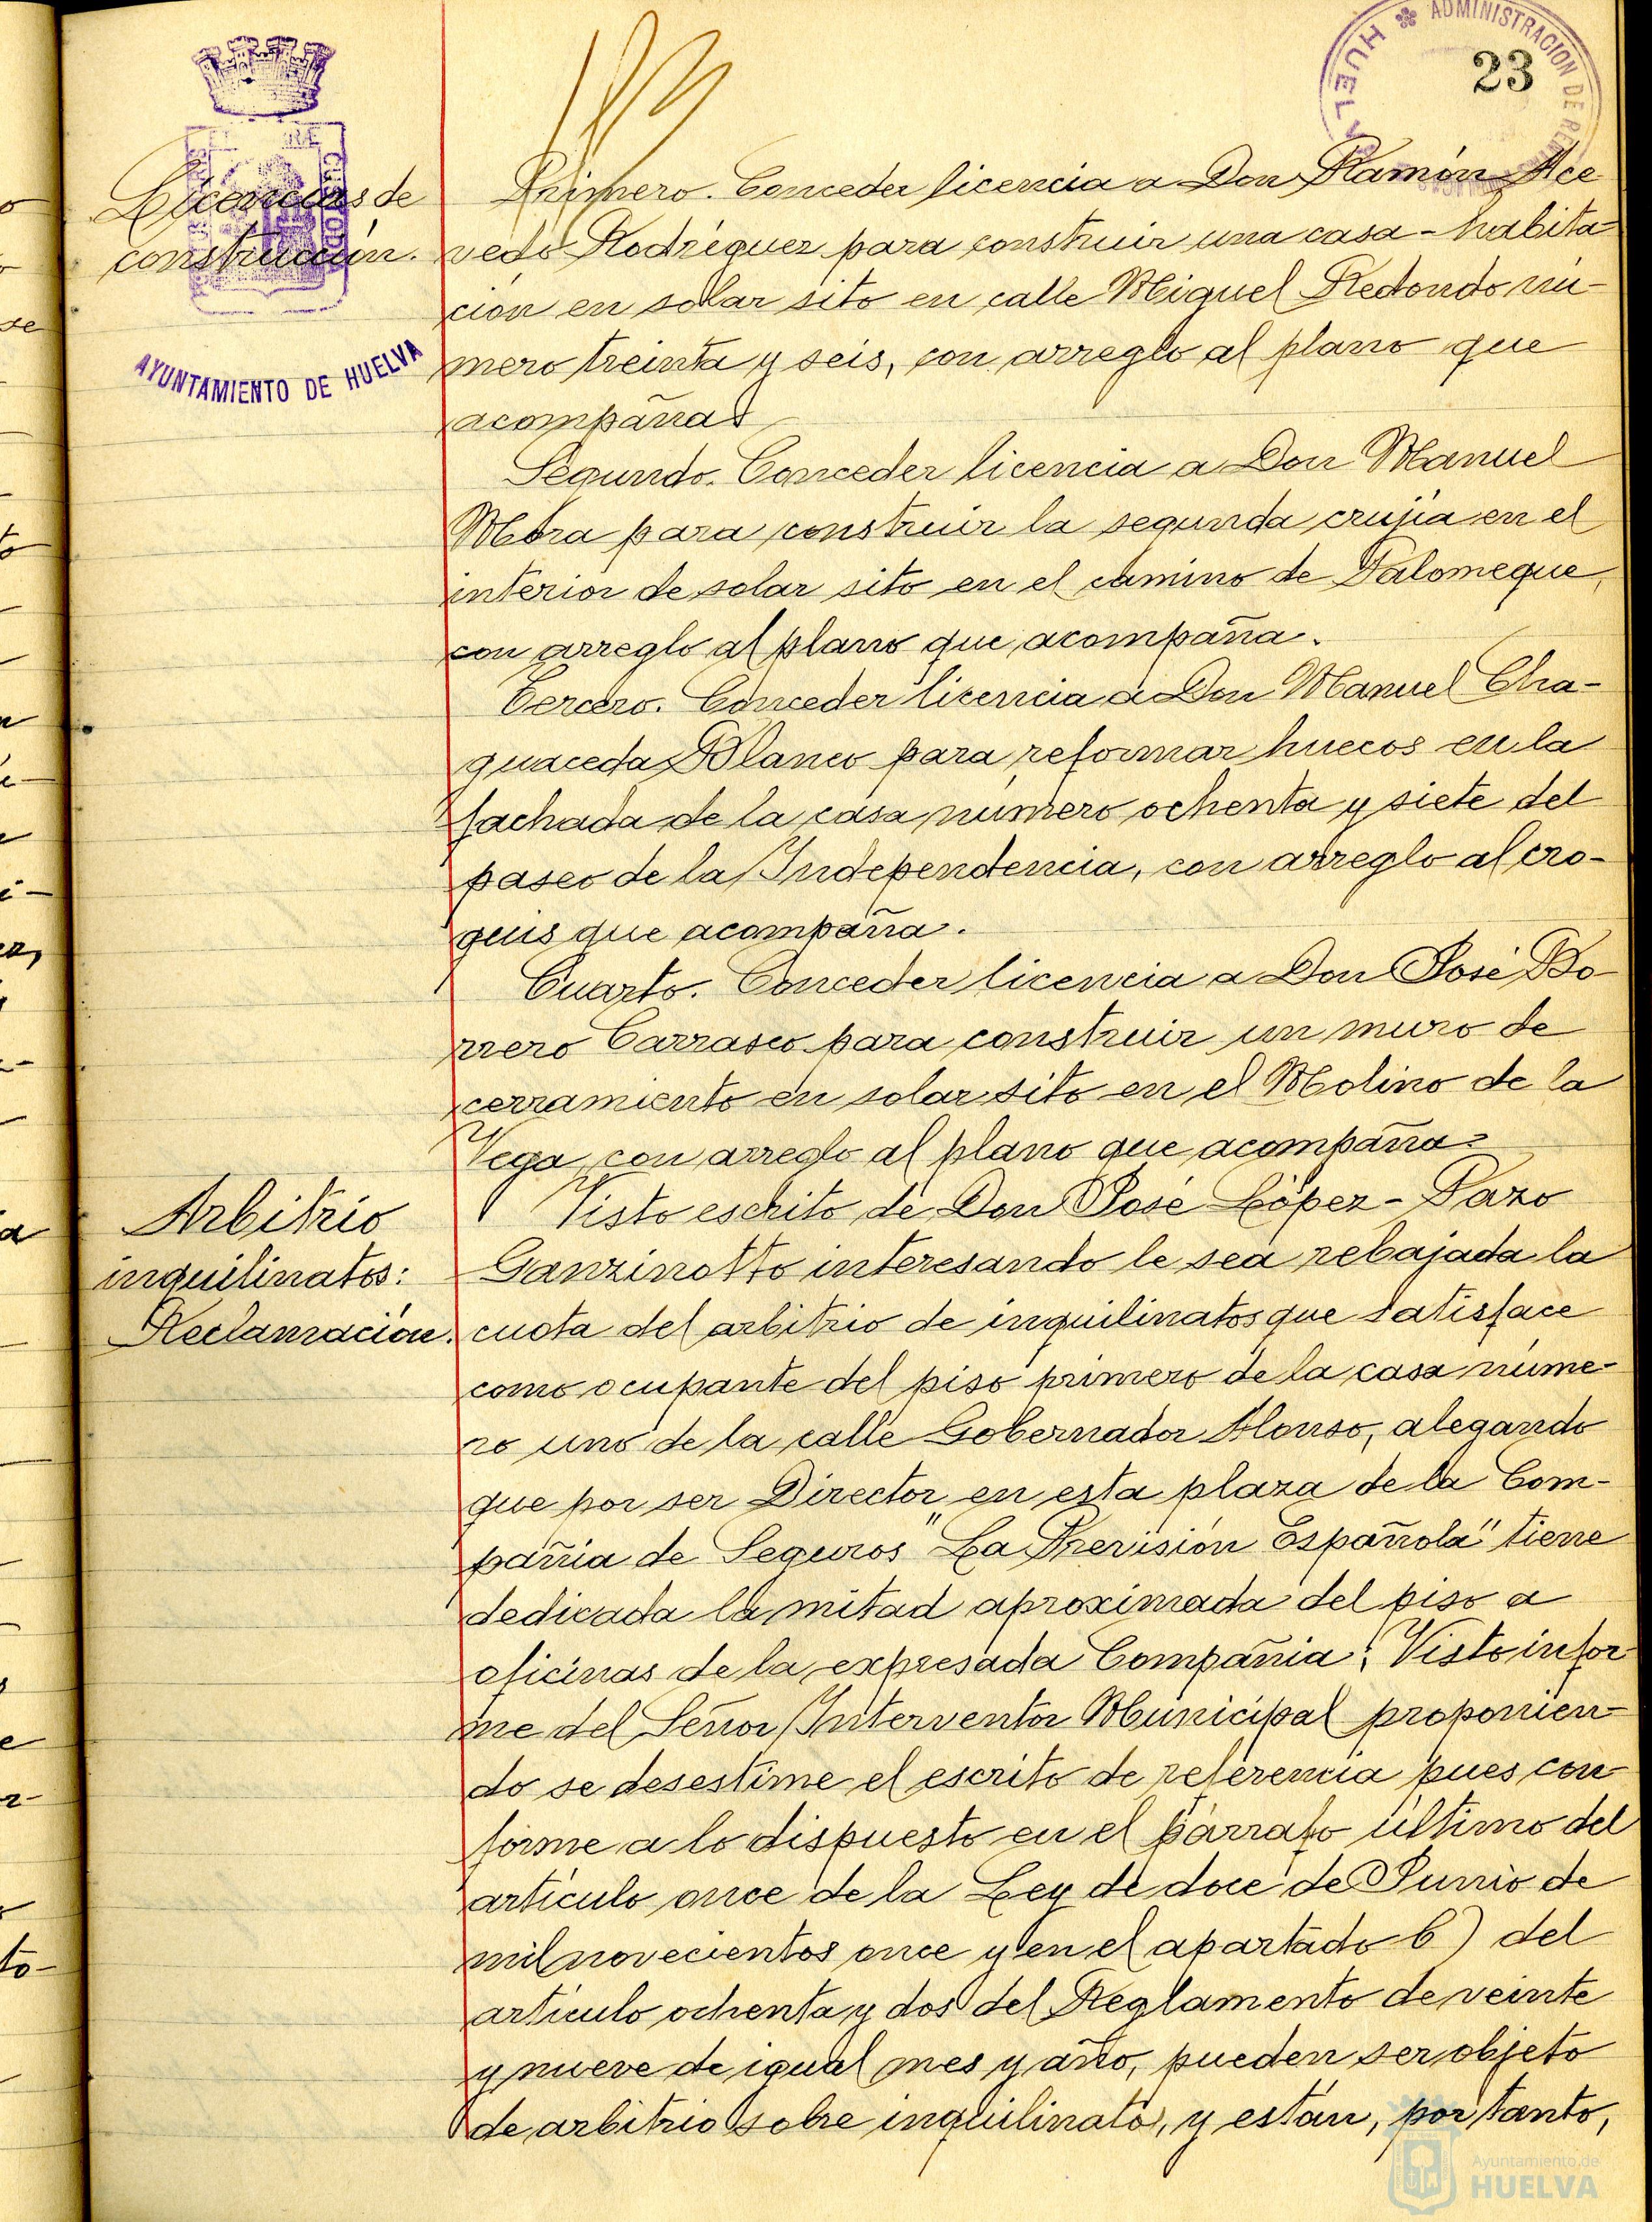 HUELVA ADMINISTRACION DE
23
Licencias de
construcción.
AYUNTAMIENTO DE HUELVA
Primero. Conceder licencia a Don Ramón Ace
vedo Rodríguez para construir una casa-habita
ción en solar sito en calle Miguel Redondo nú-
mero treinta y seis, con arreglo al plano que
acompaña.
Segundo. Conceder licencia a Don Manuel
Mora para construir la segunda crujía en el
interior de solar sito en el camino de Palomeque,
con arreglo al plano que acompaña.
Tercero. Conceder licencia a Don Manuel Cha-
guaceda Blanco para reformar huecos en la
fachada de la casa número ochenta y siete del
paseo de la Independencia, con arreglo al cro-
quis que acompaña.
Cuarto. Conceder licencia a Don José Bo-
rrero Carrasco para construir un muro de
cerramiento en solar sito en el Molino de la
Vega, con arreglo al plano que acompaña.
Arbitrio
inquilinatos:
Reclamación.
Visto escrito de Don José López-Pazo
Ganzinotto interesando le sea rebajada la
cuota del arbitrio de inquilinatos que satisface
como ocupante del piso primero de la casa núme-
ro uno de la calle Gobernador Alonso, alegando
que por ser Director en esta plaza de la Com-
pañia de Seguros "La Previsión Española" tiene
dedicada la mitad aproximada del piso a
oficinas de la expresada Compañia; Visto infor
me del Señor Interventor Municipal proponien-
do se desestime el escrito de referencia pues con-
forme a lo dispuesto en el párrafo último del
artículo once de la Ley de doce de Junio de
mil novecientos once y en el apartado b) del
artículo ochenta y dos del Reglamento de veinte
y nueve de igual mes y año, pueden ser objeto
de arbitrio sobre inquilinato, y están, por tanto,
Ayuntamiento de
HUELVA